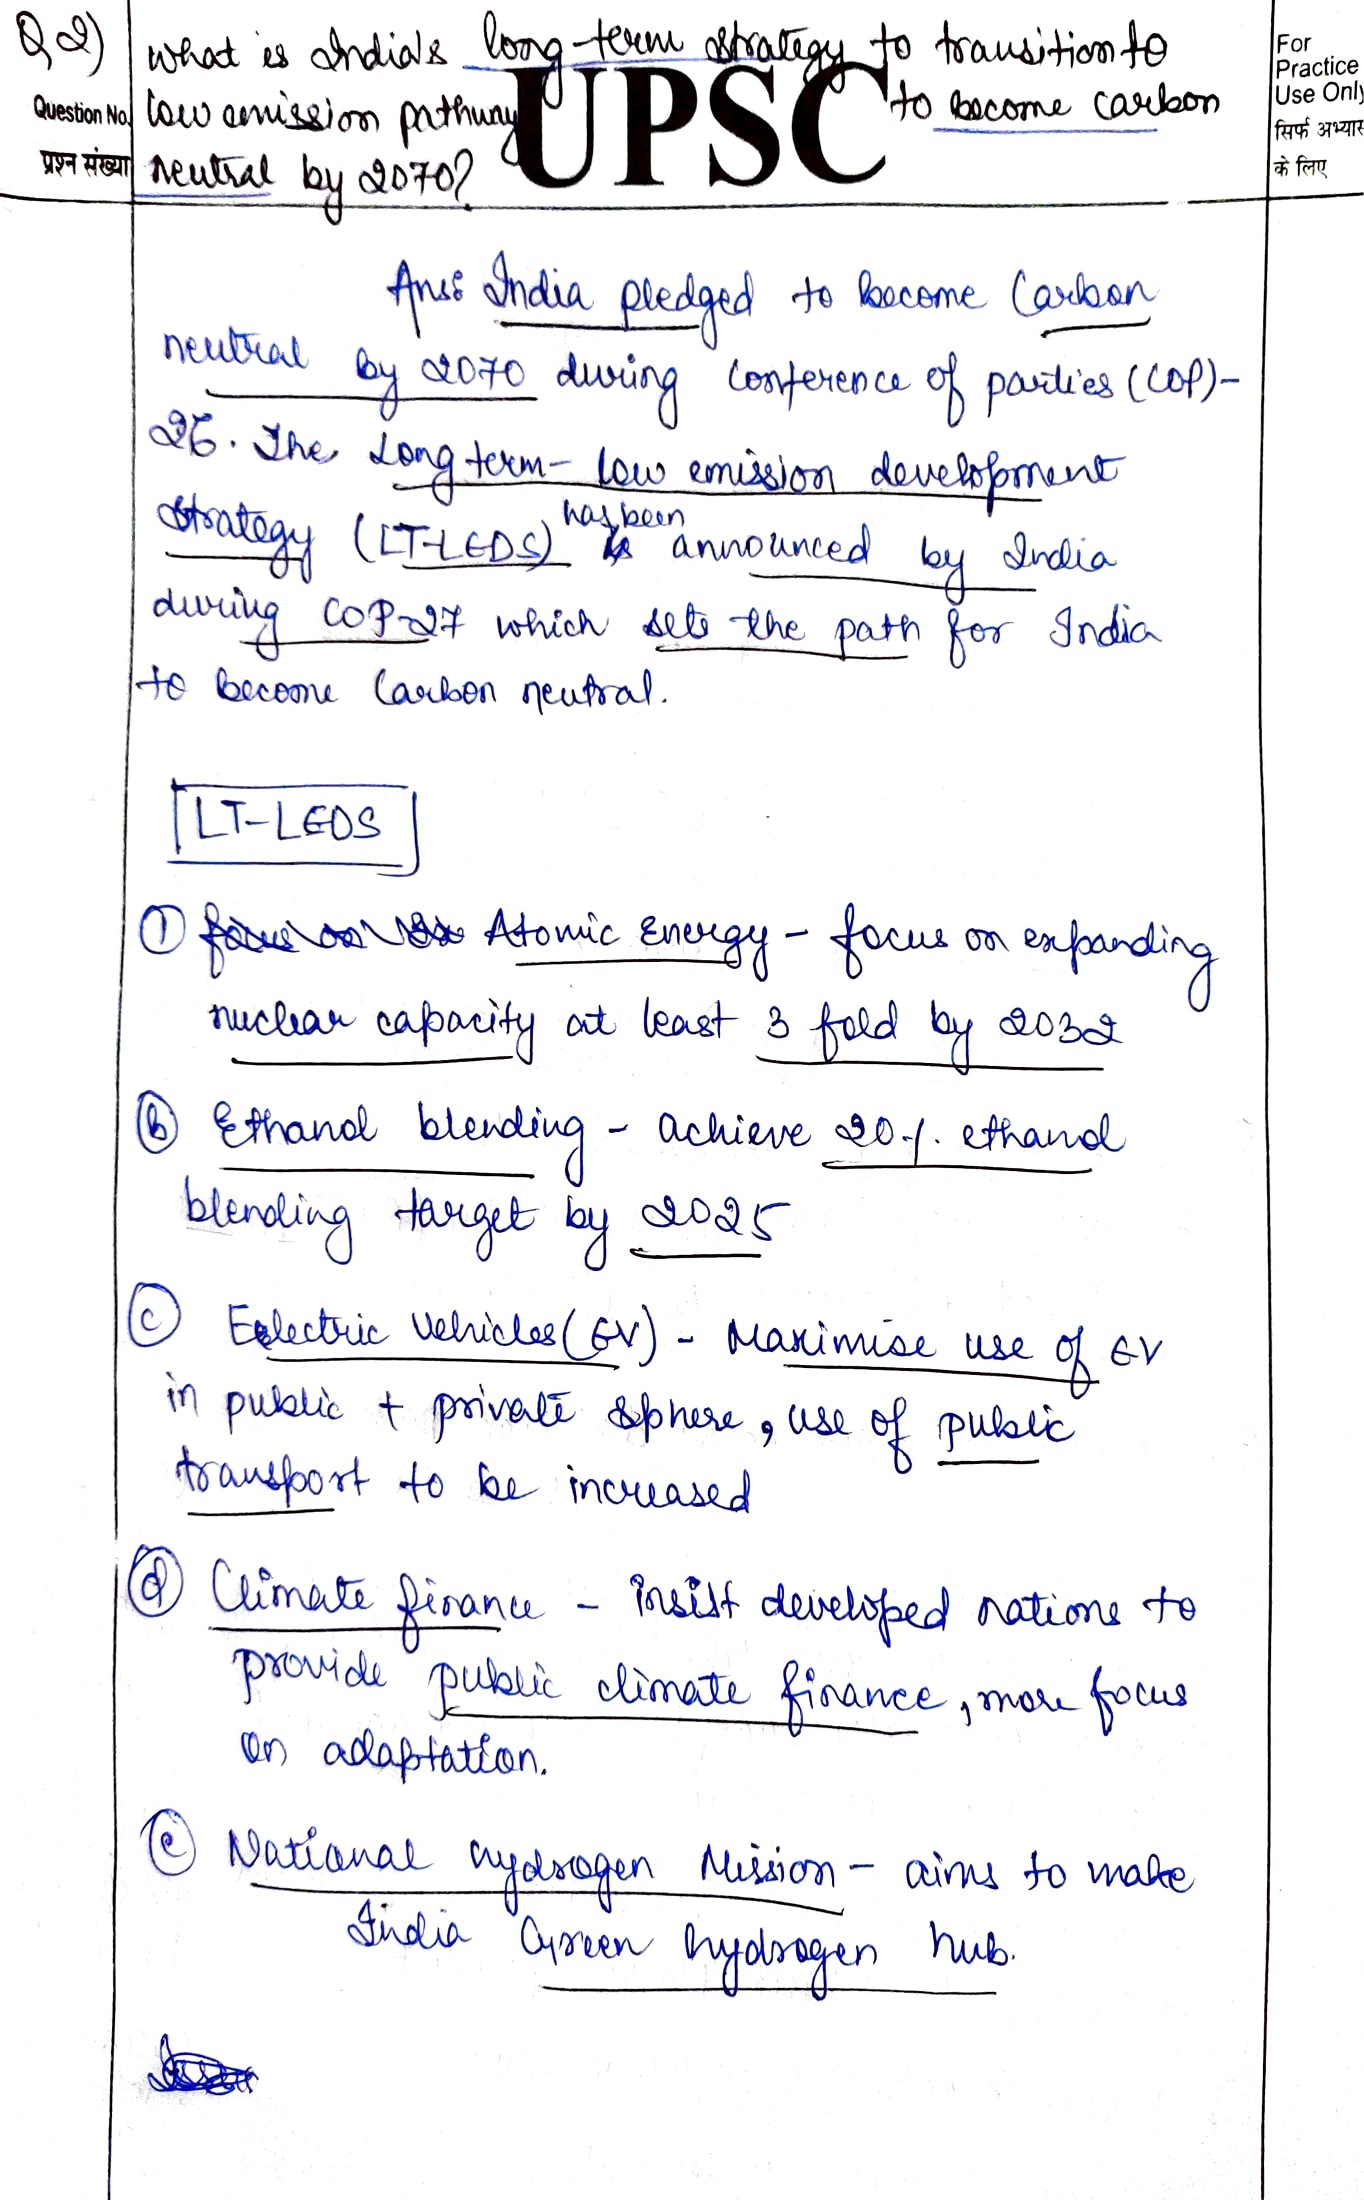 Q2) What is India's long-term strategy to transition to
low emission pathway to become carbon
neutral by 2070?
UPSC
Question No.
प्रश्न संख्या
For
Practice
Use Only
सिर्फ अभ्यास
के लिए
Ans: India pledged to become Carbon
neutral by 2070 during Conference of parties (COP)-
26. The Long term- low emission development
strategy (LT-LEDS) has been announced by India
during COP-27 which sets the path for India
to become Carbon neutral.
LT-LEDS
① Atomic Energy - focus on expanding
nuclear capacity at least 3 fold by 2032
ⓑ Ethanol blending - achieve 20% ethanol
blending target by 2025
ⓒ Electric Vehicles (EV) - Maximise use of EV
in public + private sphere, use of public
transport to be increased
ⓓ Climate finance - insist developed nations to
provide public climate finance, more focus
on adaptation.
ⓔ National hydrogen Mission - aims to make
India Green hydrogen hub.